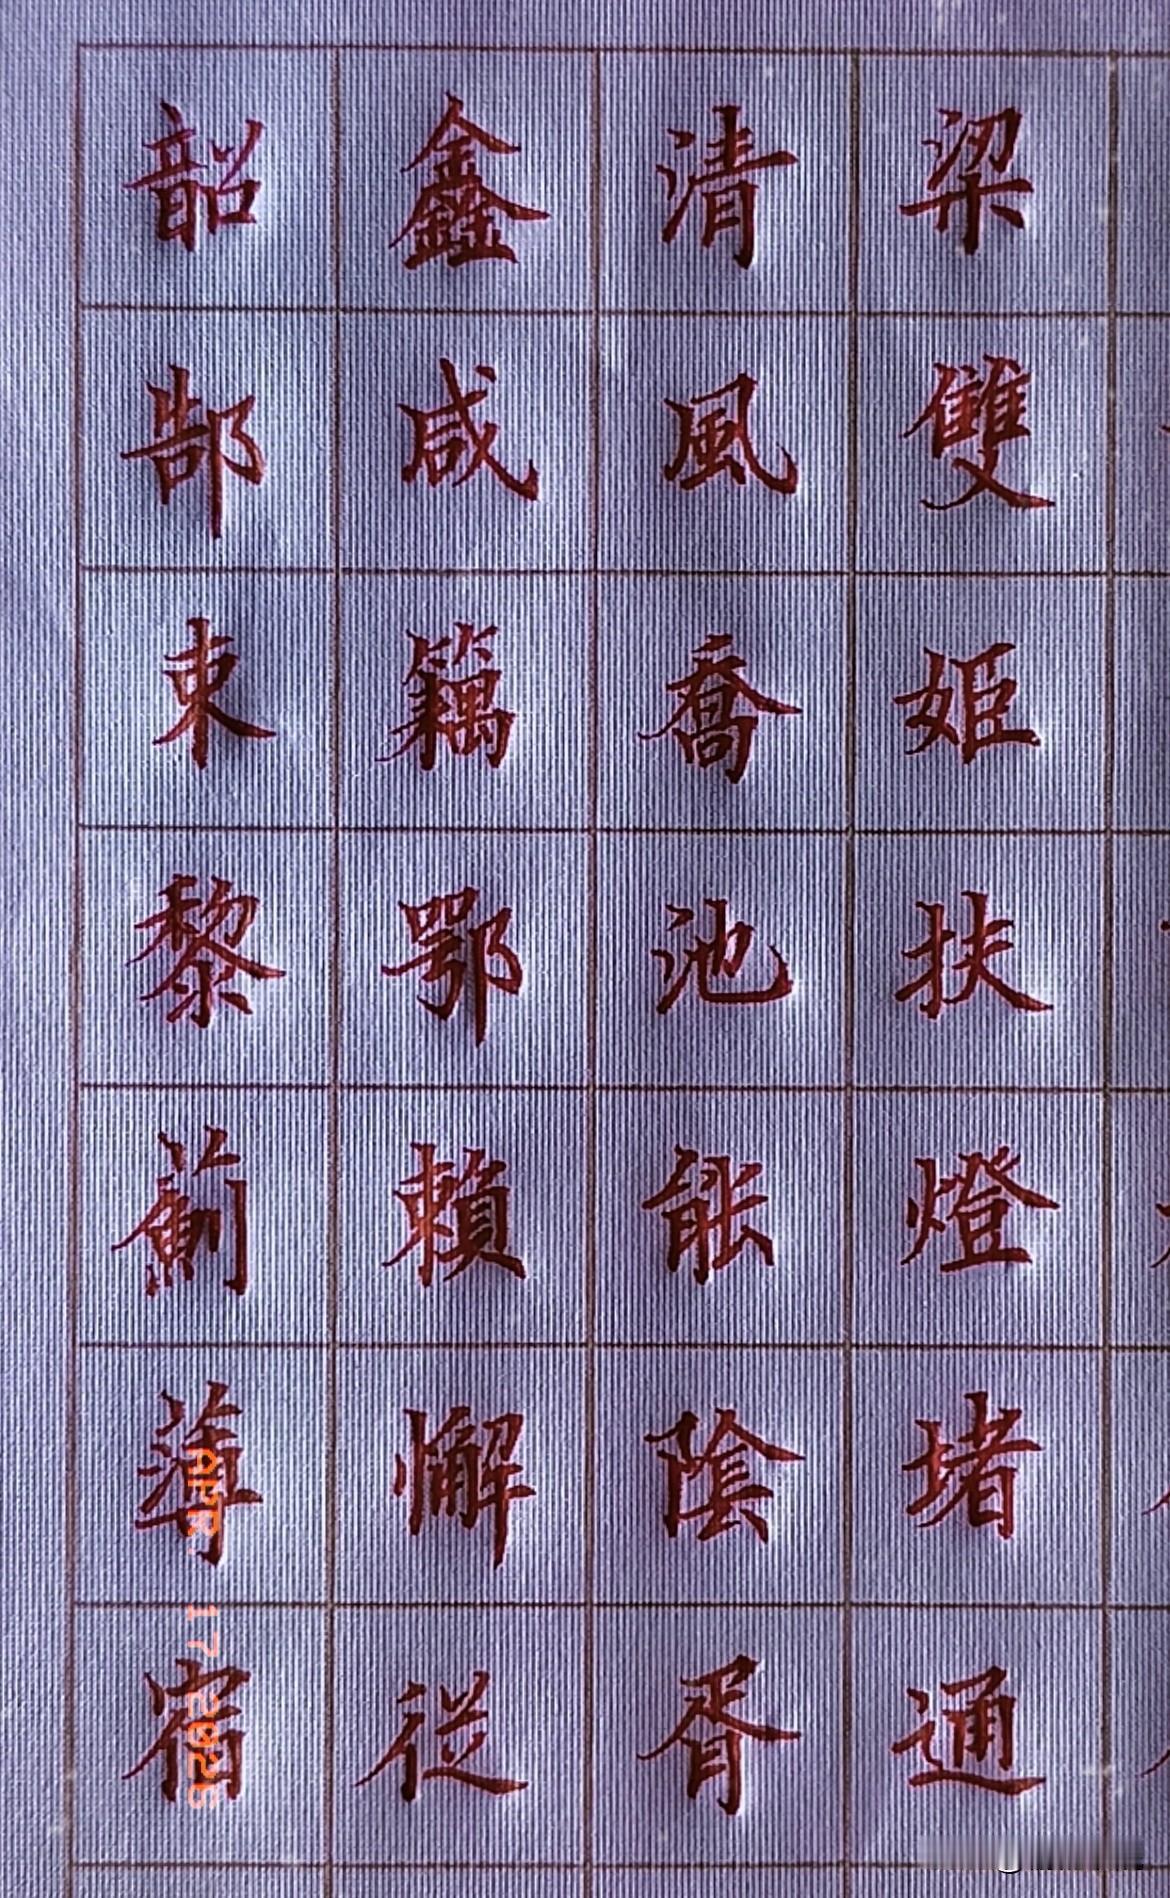 梁雙姬扶燈堵通
清風喬池能陰胥
鑫咸籍鄂賴懈従
韶郜束黎薊薄宿
APR. 17 2026